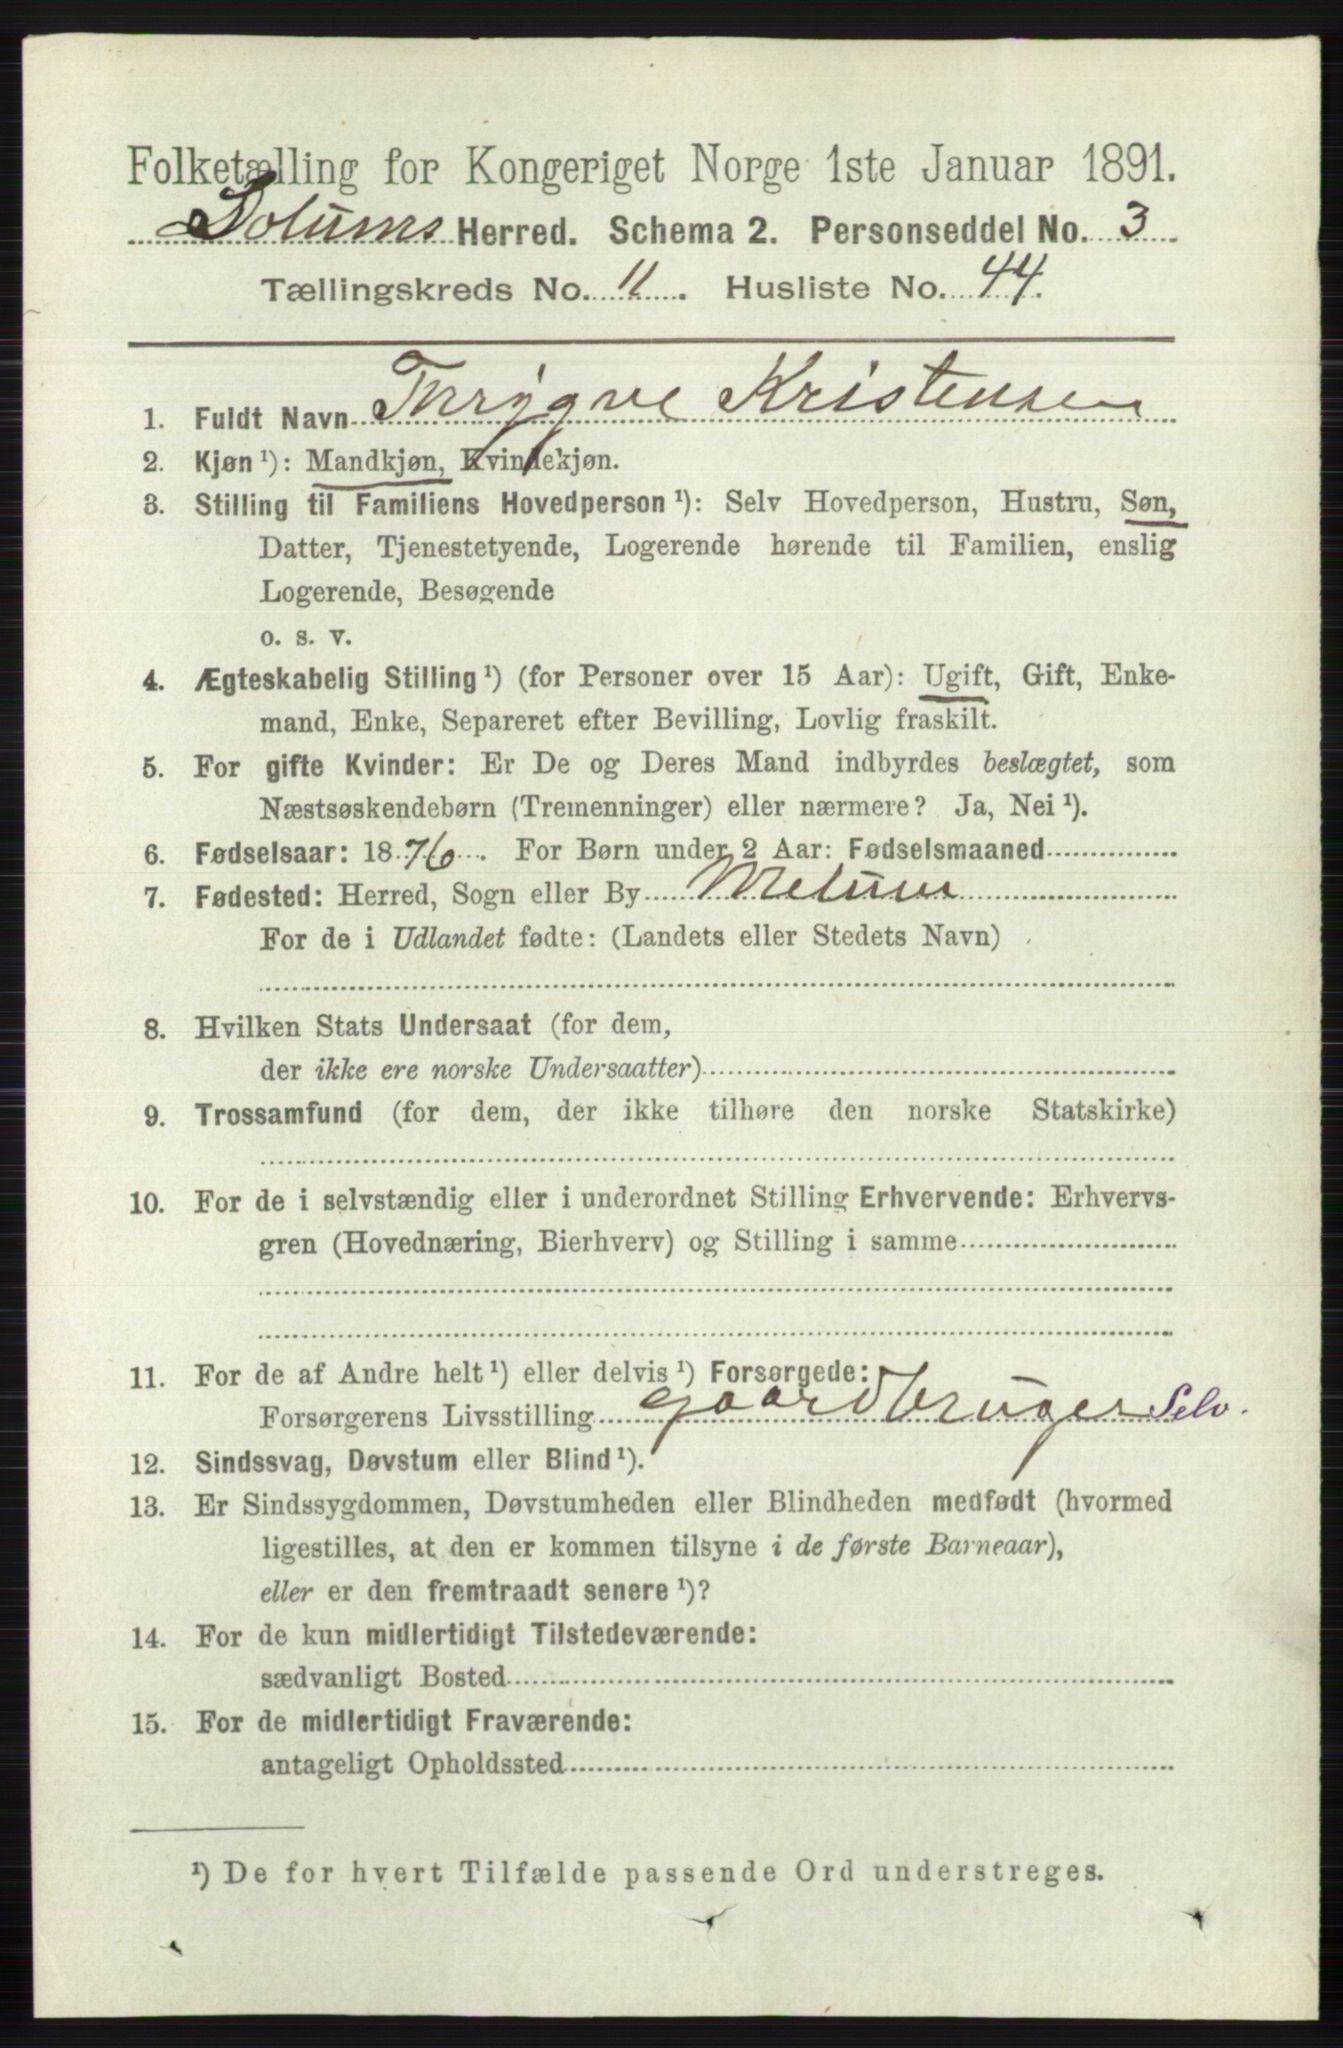 Folketælling for Kongeriget Norge 1ste Januar 1891.
Solums Herred. Schema 2. Personseddel No. 3
Tællingskreds No. 11. Husliste No. 44.
1. Fuldt Navn Thrygve Kristensen
2. Kjøn ¹): Mandkjøn, Kvindekjøn.
3. Stilling til Familiens Hovedperson ¹): Selv Hovedperson, Hustru, Søn,
Datter, Tjenestetyende, Logerende hørende til Familien, enslig
Logerende, Besøgende
o. s. v.
4. Ægteskabelig Stilling ¹) (for Personer over 15 Aar): Ugift, Gift, Enke-
mand, Enke, Separeret efter Bevilling, Lovlig fraskilt.
5. For gifte Kvinder: Er De og Deres Mand indbyrdes beslægtet, som
Næstsøskendebørn (Tremenninger) eller nærmere? Ja, Nei ¹).
6. Fødselsaar: 1876. For Børn under 2 Aar: Fødselsmaaned
7. Fødested: Herred, Sogn eller By Melum
For de i Udlandet fødte: (Landets eller Stedets Navn)
8. Hvilken Stats Undersaat (for dem,
der ikke ere norske Undersaatter)
9. Trossamfund (for dem, der ikke tilhøre den norske Statskirke)
10. For de i selvstændig eller i underordnet Stilling Erhvervende: Erhvervs-
gren (Hovednæring, Bierhverv) og Stilling i samme
11. For de af Andre helt ¹) eller delvis ¹) Forsørgede:
Forsørgerens Livsstilling gaardbruger Selv.
12. Sindssvag, Døvstum eller Blind ¹).
13. Er Sindssygdommen, Døvstumheden eller Blindheden medfødt (hvormed
ligestilles, at den er kommen tilsyne i de første Barneaar),
eller er den fremtraadt senere ¹)?
14. For de kun midlertidigt Tilstedeværende:
sædvanligt Bosted
15. For de midlertidigt Fraværende:
antageligt Opholdssted
¹) De for hvert Tilfælde passende Ord understreges.